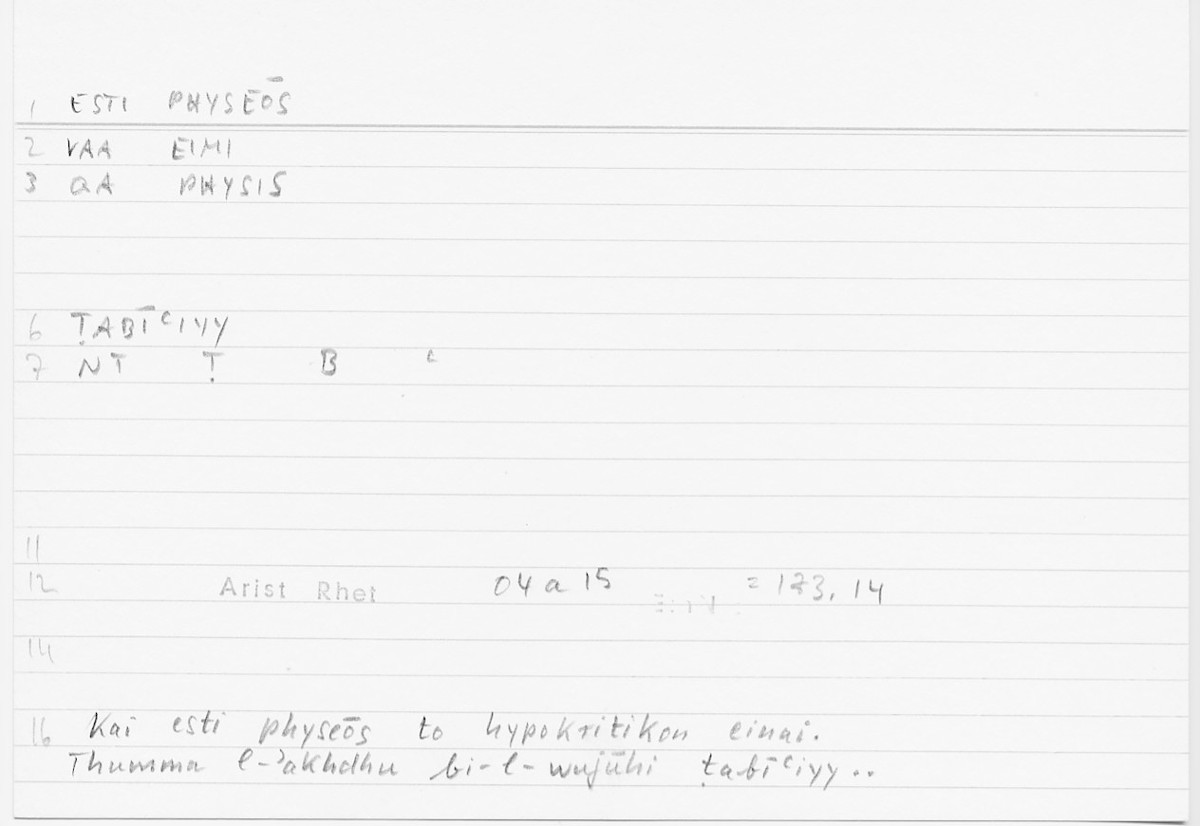 1 ESTI PHYSEŌS
2 VAA EIMI
3 QA PHYSIS
6 ṬABĪʿIYY
7 NT Ṭ B ʿ
11
12 Arist Rhet 04 a 15 = 173, 14
14
16 Kai esti physeōs to hypokritikon einai.
Thumma l-ʾakhdhu bi-l-wujūhi ṭabīʿiyy..